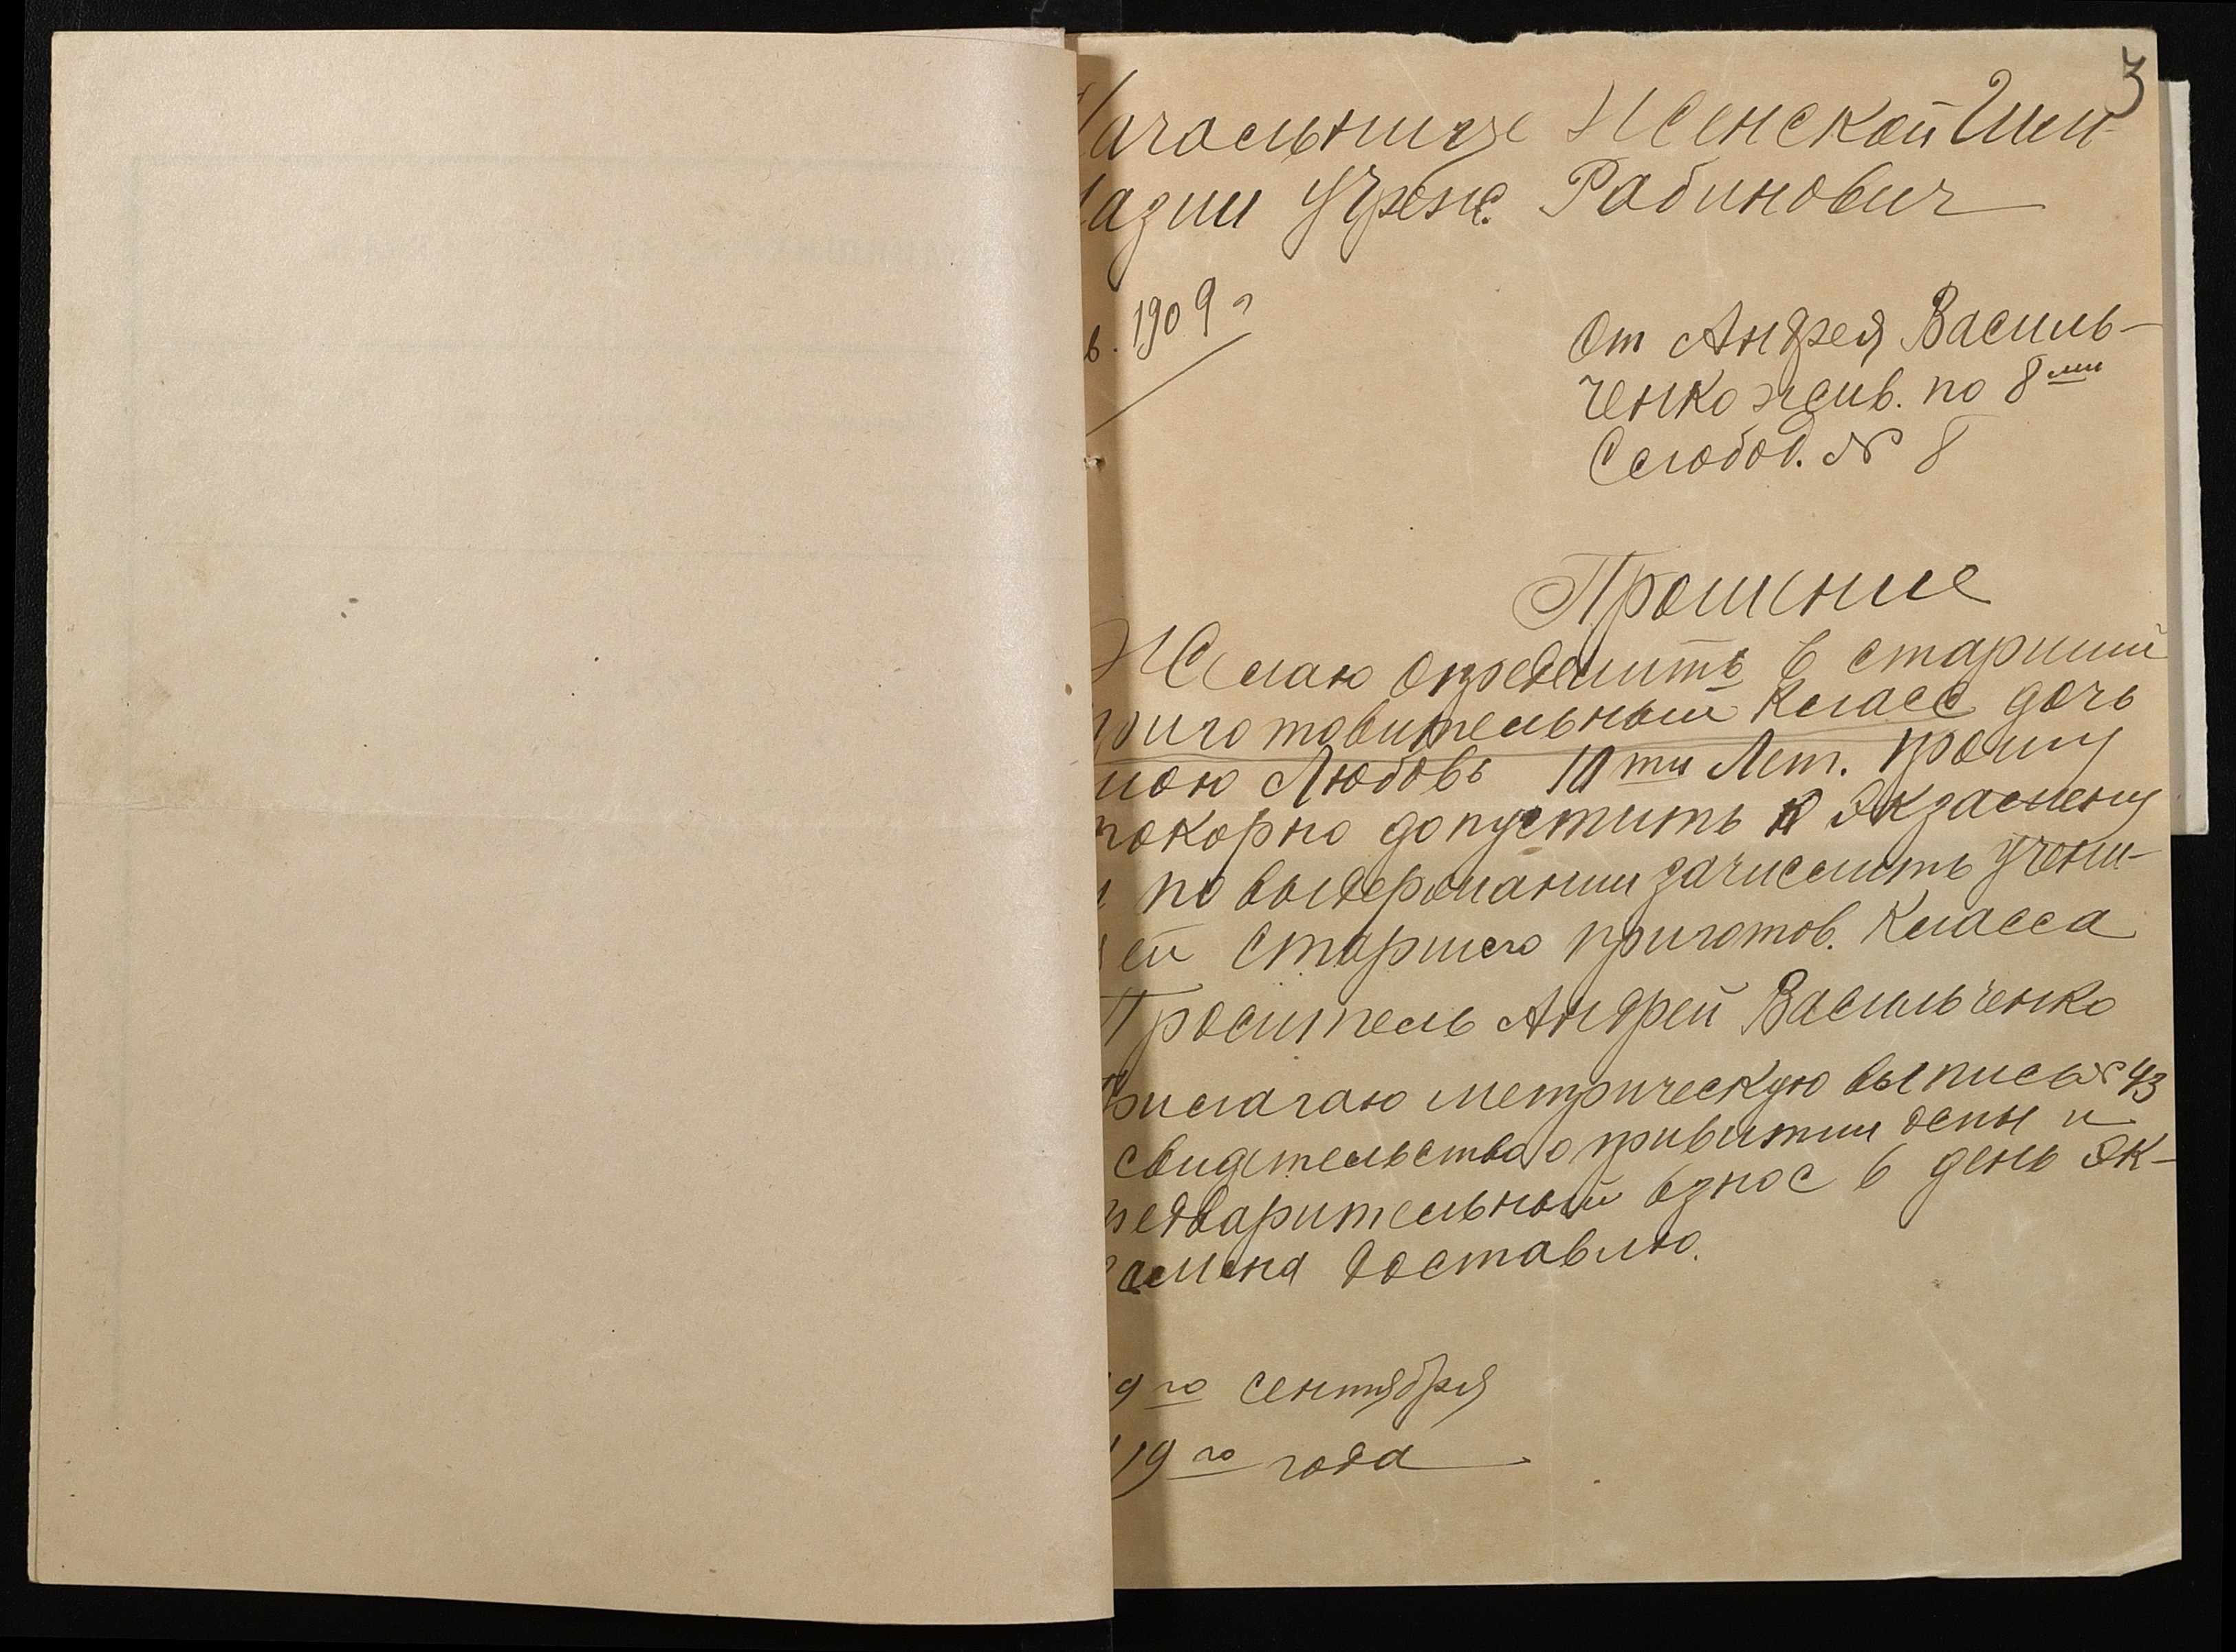 3
Начальнице Женской Гим-
назии Учреж. Рабинович
в. 1909 г
От Андрея Василь-
ченко жив. по 8 ми
Слобод. № 8
Прошение
Желаю определить в старший
приготовительный класс дочь
мою Любовь 10 ти Лет. прошу
покорно допустить к экзамену
и по выдержании зачислить учени-
цей Старшего приготов. Класса
Проситель Андрей Васильченко
Прилагаю метрическую выпись № 43
свидетельство о привитии оспы и
предварительный взнос в день эк-
замена доставлю.
9 го сентября
19 го года